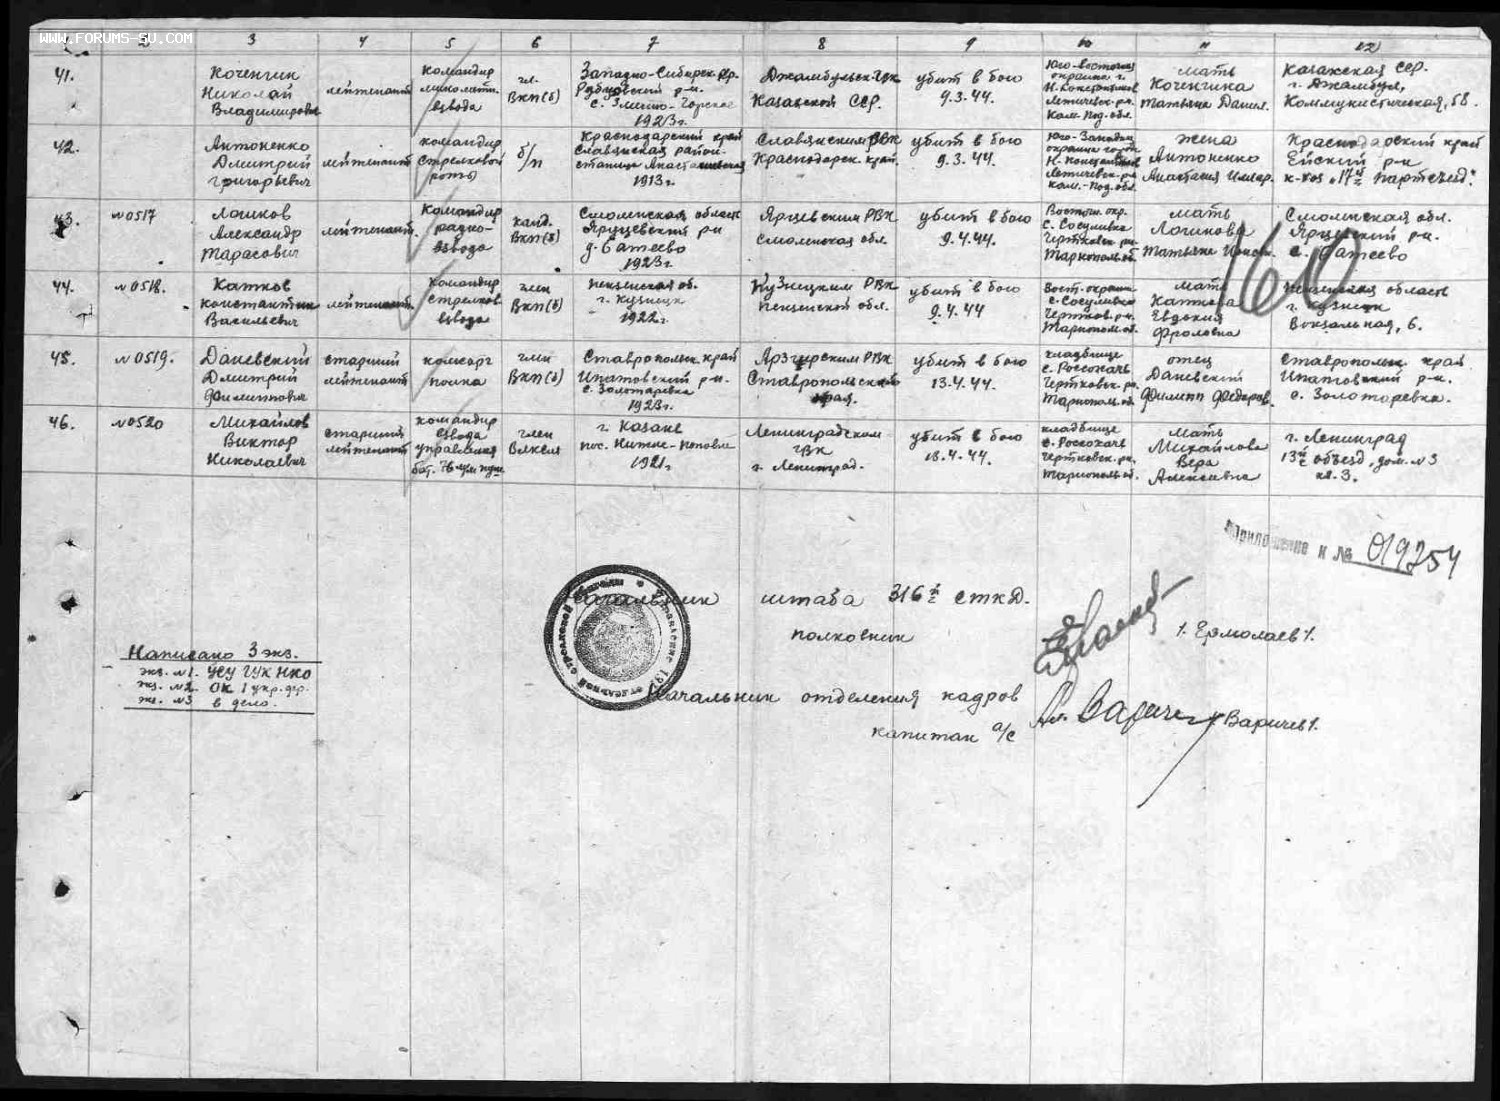 WWW.FORUMS-SU.COM
2 3 4 5 6 7 8 9 10 11 12
41.
Коченгин
Николай
Владимирович
лейтенант
командир
взвода
чл.
ВКП(б)
Западно-Сибирск. кр.
Рубцовский р-н.
1923г.
Джамбульск. ГВК
Казахской ССР.
убит в бою
9.3.44.
Юго-восточная
окраина г.
Н. Константинов
Летичевск. р-н.
Кам. Под. обл.
мать
Коченгина
Татьяна Данил.
Казахская ССР.
г. Джамбул,
Коммунистическая, 58.
42.
Антоненко
Дмитрий
Григорьевич
лейтенант
командир
стрелковой
роты
б/п
Краснодарский край
Славянская район.
станица Анастасиевская
1913г.
Славянским РВК
Краснодарск. край.
убит в бою
9.3.44.
Юго-Западн.
окраина
Н. Константинов
Летичевск. р-н
Кам.-Под. обл.
жена
Антоненко
Анастасия
Краснодарский край
Ейский р-н
к-хоз „17й партсъезд“
43.
№0517
Логинов
Александр
Тарасович
лейтенант.
командир
радио-
взвода
канд.
ВКП(б)
Смоленская область
Ярцевский р-н
1923г.
Ярцевским РВК
Смоленская обл.
убит в бою
9.4.44.
Восточн. окр.
с. Сосуливка
Чертковск. р-н.
Тарнопольск. об.
мать
Логинова
Татьяна
Смоленская обл.
Ярцевский р-н.
160
44.
№0518.
Катков
Константин
Васильевич
лейтенант.
командир
стрелков.
взвода
член
ВКП(б)
Пензенская об.
г. Кузнецк
1922г.
Кузнецким РВК
Пензенской обл.
убит в бою
9.4.44
Вост. окраина
с. Сосуливка
Чертков. р-н.
Тарнопол. об.
мать
Каткова
Евдокия
Фроловна
Пензенская область
г. Кузнецк
Вокзальная, 6.
45.
№0519.
Даневский
Дмитрий
Филиппович
старший
лейтенант
комсорг
полка
член
ВКП(б)
Ставропольск. край
Ипатовский р-н.
с. Золотаревка
1923г.
Арзгирским РВК
Ставропольского
края.
убит в бою
13.4.44.
кладбище
с. Россохач
Чертковск. р-н.
Тарнополь. об.
отец
Даневский
Филипп Федоров.
Ставропольск. край
Ипатовский р-н.
с. Золотаревка.
46.
№0520
Михайлов
Виктор
Николаевич
старший
лейтенант
командир
взвода
управления
бат. 76 мм пуш.
член
ВЛКСМ
г. Казань
1921г.
Ленинградском
ГВК
г. Ленинград.
убит в бою
18.4.44.
кладбище
с. Россохач
Чертковск. р-н.
Тарнополь. об.
мать
Михайлова
Вера
Алексеевна
г. Ленинград
13й объезд, дом №3
кв. 3.
Приложение к № 019254
Начальник штаба 316й сткд.
полковник
/Ермолаев/.
Написано 3 экз.
экз. №1. УСУ ГУК НКО
экз. №2. ОК 1 укр. фр.
экз. №3 в дело.
Начальник отделения кадров
капитан а/с
/Варичев/.